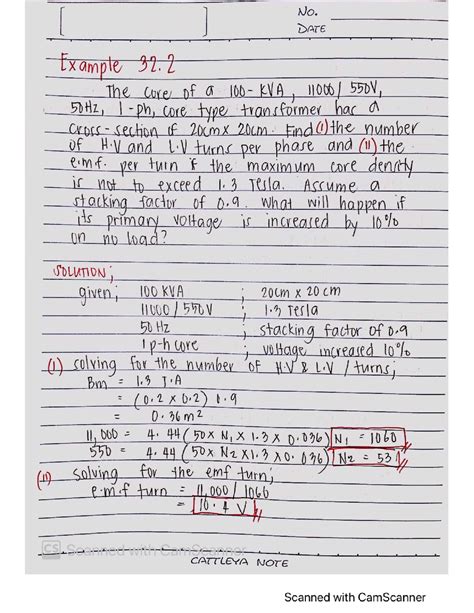 NO.
DATE
Example 32.2
The core of a 100-KVA, 11000/550V,
50Hz, 1-ph, core type transformer has a
cross-section if 20cm x 20cm. Find (i) the number
of H.V and L.V turns per phase and (ii) the
e.m.f. per turn if the maximum core density
is not to exceed 1.3 Tesla. Assume a
stacking factor of 0.9. What will happen if
its primary voltage is increased by 10%
on no load?
SOLUTION;
given; 100 KVA ; 20cm x 20 cm
11000/550V ; 1.3 Tesla
50 Hz ; stacking factor of 0.9
1 ph core ; voltage increased 10%
(i) solving for the number of H.V & L.V / turns;
Bm = 1.3 T.A
= (0.2 x 0.2) 0.9
= 0.36m²
11,000 = 4.44(50x N₁ x 1.3 x 0.036) N₁ = 1060
550 = 4.44(50x N2 x1.3 x0.036) N2 = 53
(ii) solving for the emf turn;
e.m.f turn = 11,000/1060
= 10.4 V
CS Scanned with CamScanner
CATTLEYA NOTE
Scanned with CamScanner